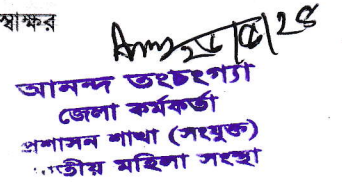 স্বাক্ষর
আনন্দ তংচংগ্যা
জেলা কর্মকর্তা
প্রশাসন শাখা (সংযুক্ত)
জাতীয় মহিলা সংস্থা